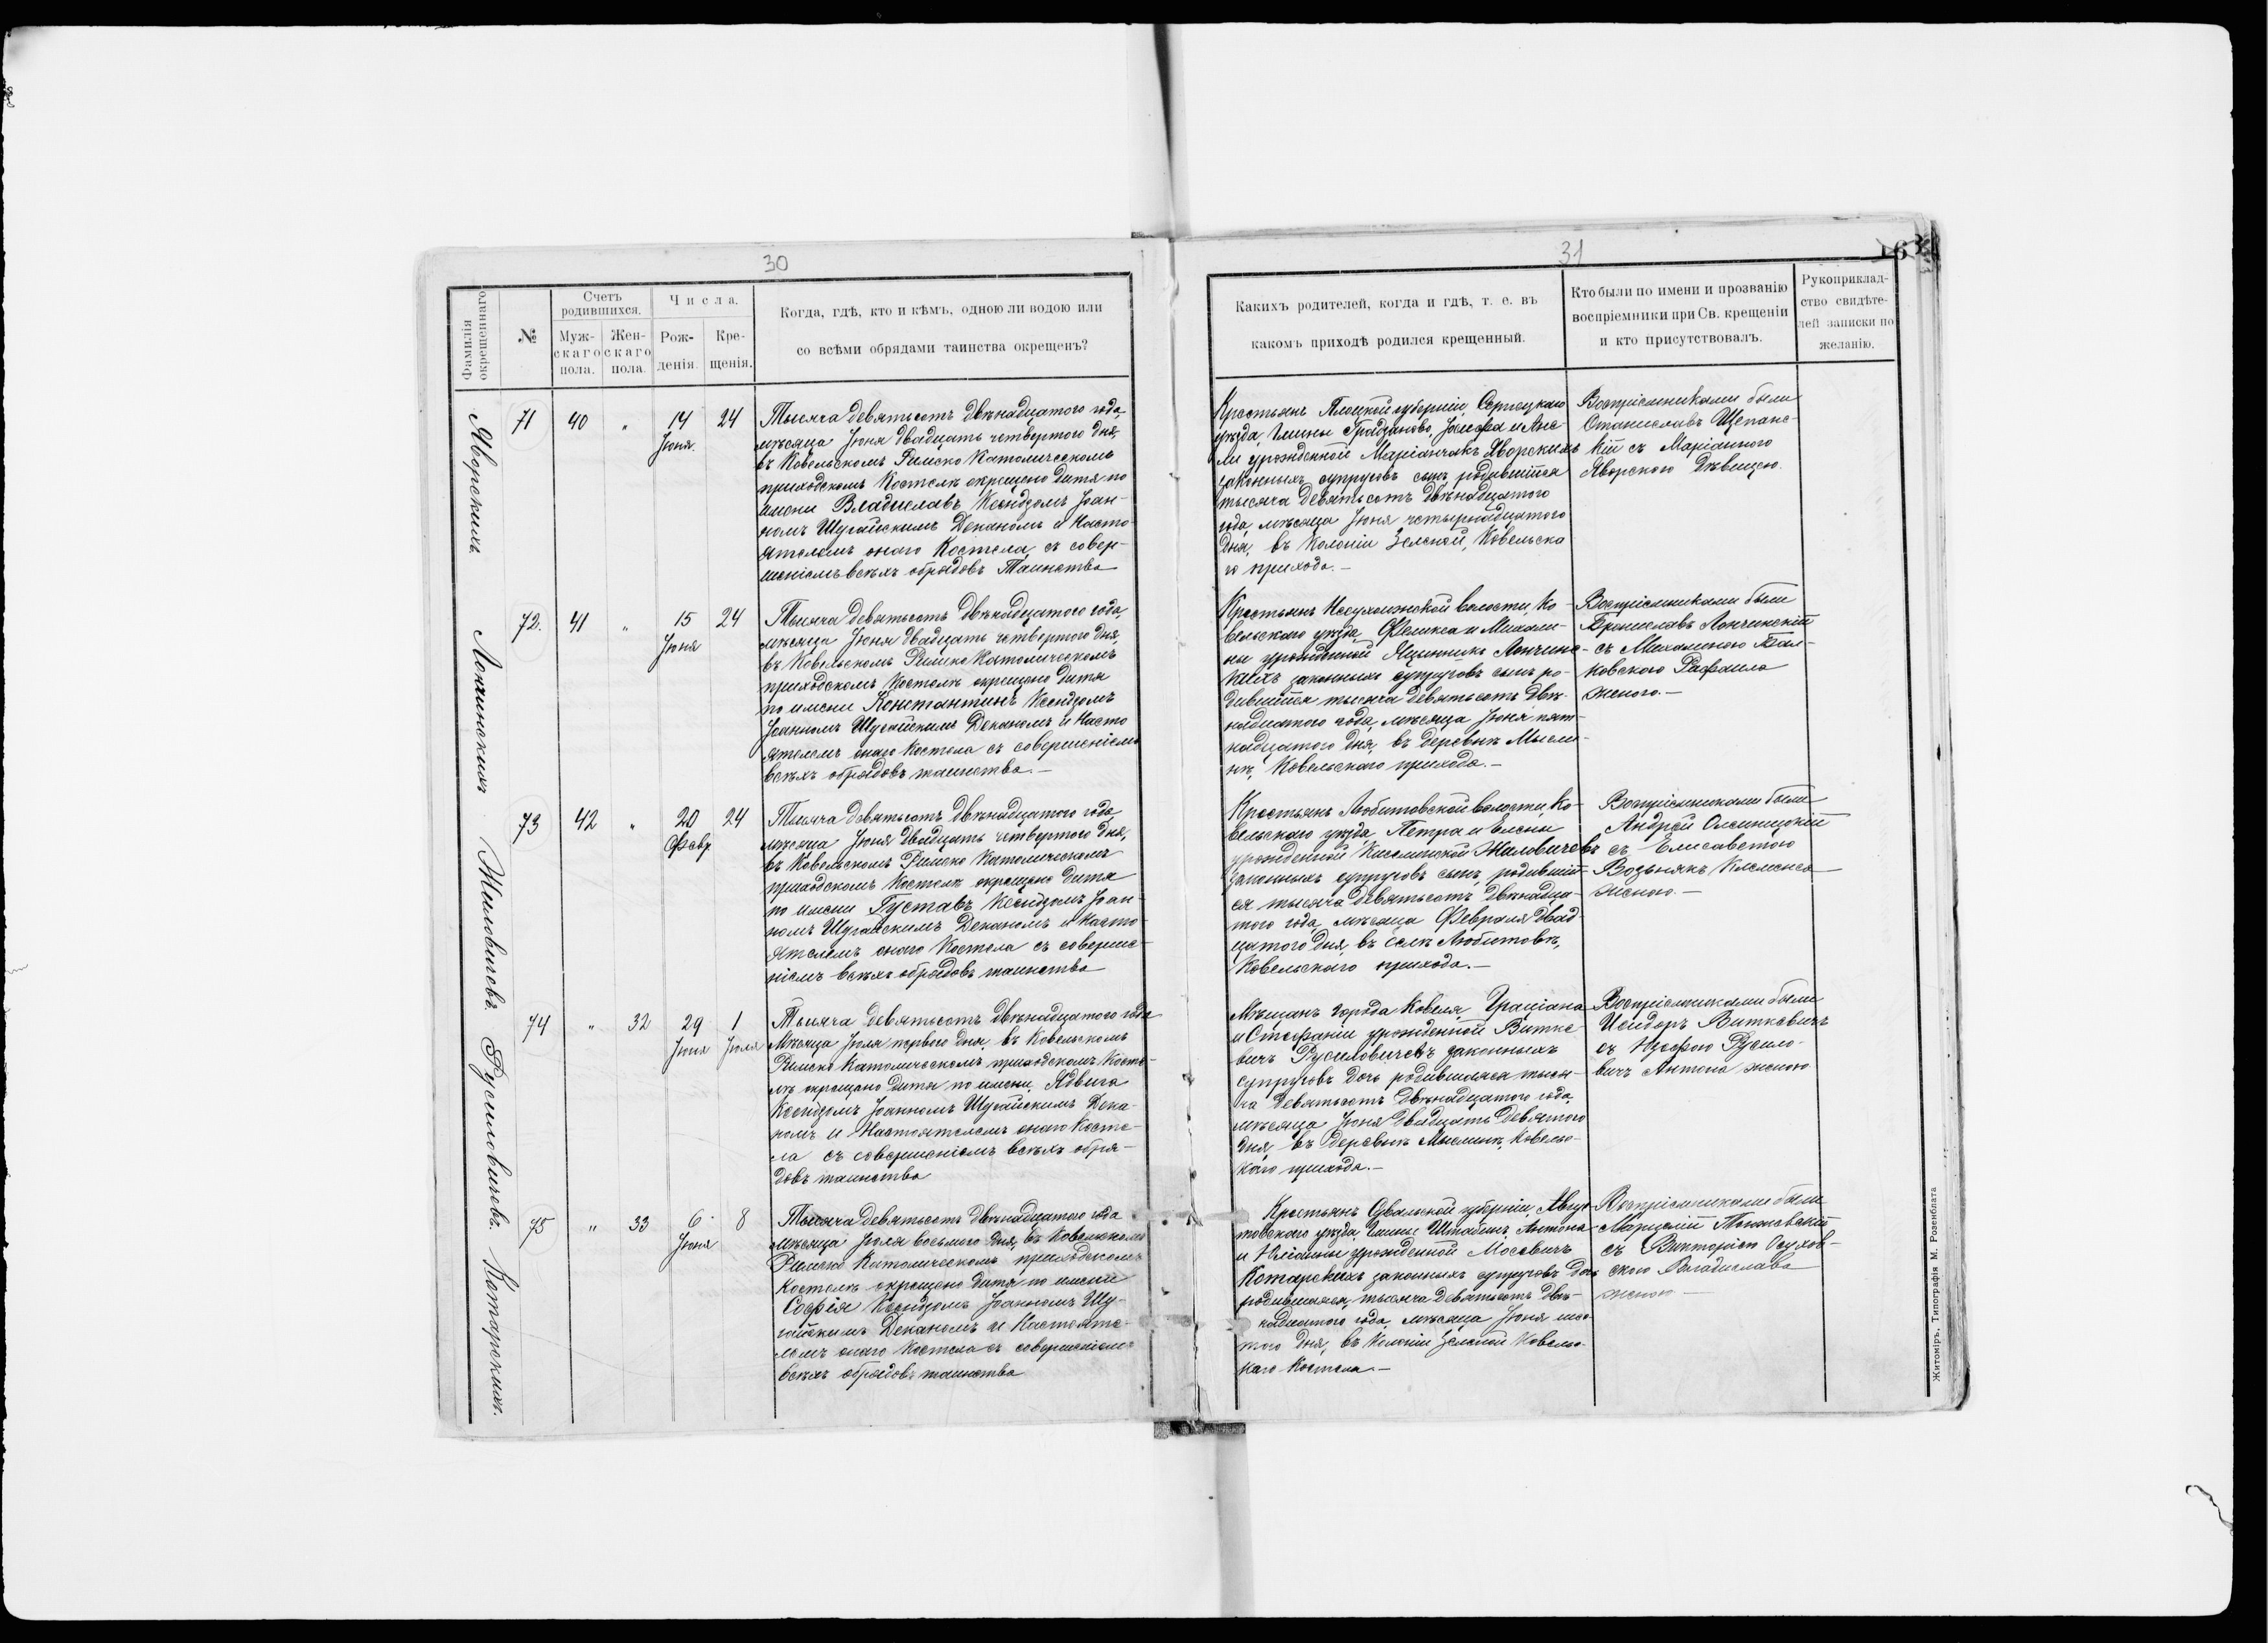 30
Фамилія окрещеннаго.
№
Счетъ родившихся.
Муж-
скаго
пола.
Жен-
скаго
пола.
Числа.
Рож-
денія.
Кре-
щенія.
Когда, гдѣ, кто и кѣмъ, одною ли водою или
со всѣми обрядами таинства окрещенъ?
Яворскихъ
71
40
"
14
Іюня
24
Тысяча девятьсотъ двѣнадцатого года,
мѣсяца Іюня двадцать четвертого дня,
въ Ковельскомъ Римско Католическомъ
приходскомъ Костелѣ окрещено дитя по
имени Владиславъ Ксендзомъ Іоан-
номъ Шугайскимъ Деканомъ и Насто-
ятелемъ онаго Костела, съ совер-
шеніемъ всѣхъ обрядовъ Таинства
Лончинскихъ
72.
41
"
15
Іюня
24
Тысяча девятьсотъ двѣнадцатого года,
мѣсяца Іюня двадцать четвертого дня,
въ Ковельскомъ Римско Католическомъ
приходскомъ Костелѣ окрещено дитя
по имени Константинъ Ксендзомъ
Іоанномъ Шугайскимъ Деканомъ и Насто
ятелемъ онаго Костела съ совершеніемъ
всѣхъ обрядовъ таинства.—
Жиловичевъ
73
42
"
20
Февр
24
Тысяча девятьсотъ двѣнадцатого года
мѣсяца Іюня двадцать четвертого дня,
въ Ковельскомъ Римско Католическомъ
приходскомъ Костелѣ окрещено дитя
по имени Густавъ Ксендзомъ Іоан-
номъ Шугайскимъ Деканомъ и Насто-
ятелемъ онаго Костела съ соверше-
ніемъ всѣхъ обрядовъ таинства
Русиловичевъ.
74
"
32
29
Іюня
1
Іюля
Тысяча девятьсотъ двѣнадцатого года
Мѣсяца Іюля первого дня, въ Ковельскомъ
Римско Католическомъ приходскомъ Косте-
лѣ окрещено дитя по имени Ядвига
Ксендзомъ Іоанномъ Шугайскимъ Дека-
номъ и Настоятелемъ онаго Косте-
ла съ совершеніемъ всѣхъ обря-
довъ таинства
Котарскихъ.
75
"
33
6
Іюня
8
Тысяча девятьсотъ двѣнадцатого года
мѣсяца Іюля восьмого дня, въ Ковельскомъ
Римско Католическомъ приходскомъ
Костелѣ окрещено дитя по имени
Софія Ксендзомъ Іоанномъ Шу-
гайскимъ Деканомъ и Настояте-
лемъ онаго Костела съ совершеніемъ
всѣхъ обрядовъ таинства
31
Какихъ родителей, когда и гдѣ, т. е. въ
какомъ приходѣ родился крещенный.
Кто были по имени и прозванію
воспріемники при Св. крещеніи
и кто присутствовалъ.
Рукоприклад-
ство свидѣте-
лей записки по
желанію.
Крестьянъ Плоцкой губерніи, Серпецкаго
уѣзда, Гмины Градзаново, Іосифа и Ане-
ли урожденной Маріанчакъ Яворскихъ
законныхъ супруговъ сынъ, родившійся
тысяча девятьсотъ двѣнадцатого
года, мѣсяца Іюня четырнадцатого
дня, въ Колоніи Зеленой, Ковельска
го прихода.—
Воспріемниками были
Станиславъ Щепанс-
кій съ Маріанною
Яворскою Дѣвицею.
Крестьянъ Несухоижской волости, Ко-
вельскаго уѣзда, Феликса и Михали-
ны урожденной Лончинс-
кихъ законныхъ супруговъ сынъ ро-
дившійся тысяча девятьсотъ двѣ-
надцатого года, мѣсяца Іюня пят-
надцатого дня, въ деревнѣ Мысли-
нѣ, Ковельскаго прихода.—
Воспріемниками были
Брониславъ Лончинскій
съ Михалиною
Рафаила
женою.—
Крестьянъ Любитовской волости, Ко-
вельскаго уѣзда, Петра и Елены
урожденной Жиловичевъ
законныхъ супруговъ сынъ, родившій-
ся тысяча девятьсотъ двѣнадца-
того года, мѣсяца Февраля двад-
цатого дня, въ селѣ Любитовѣ,
Ковельскаго прихода.—
Воспріемниками были
Андрей Олсиницкій
съ Елисаветою
Возьнякъ Клеменса
женою.—
Мѣщанъ города Ковеля, Граціана
и Стефаніи урожденной Витке-
вичъ Русиловичевъ законныхъ
супруговъ дочь родившаяся тыся-
ча девятьсотъ двѣнадцатого года,
мѣсяца Іюня двадцать девятого
дня, въ деревнѣ Мыслинѣ, Ковельс-
каго прихода.—
Воспріемниками были
Исидоръ Виткевичъ
съ Юзефою Русило-
вичъ Антона женою
Крестьянъ Сувальской губерніи, Авгус-
товскаго уѣзда, Гмины Штабинъ, Антона
и Юліанны урожденной Мосевичъ
Котарскихъ законныхъ супруговъ дочь
родившаяся, тысяча девятьсотъ двѣ-
надцатого года, мѣсяца Іюня шес-
того дня, въ Колоніи Зеленой Ковельс-
каго Костела.—
Воспріемниками были
Марцелій
съ Викторіею Осухов-
скою Владислава
женою—
Житоміръ, Типографія М. Розенблата